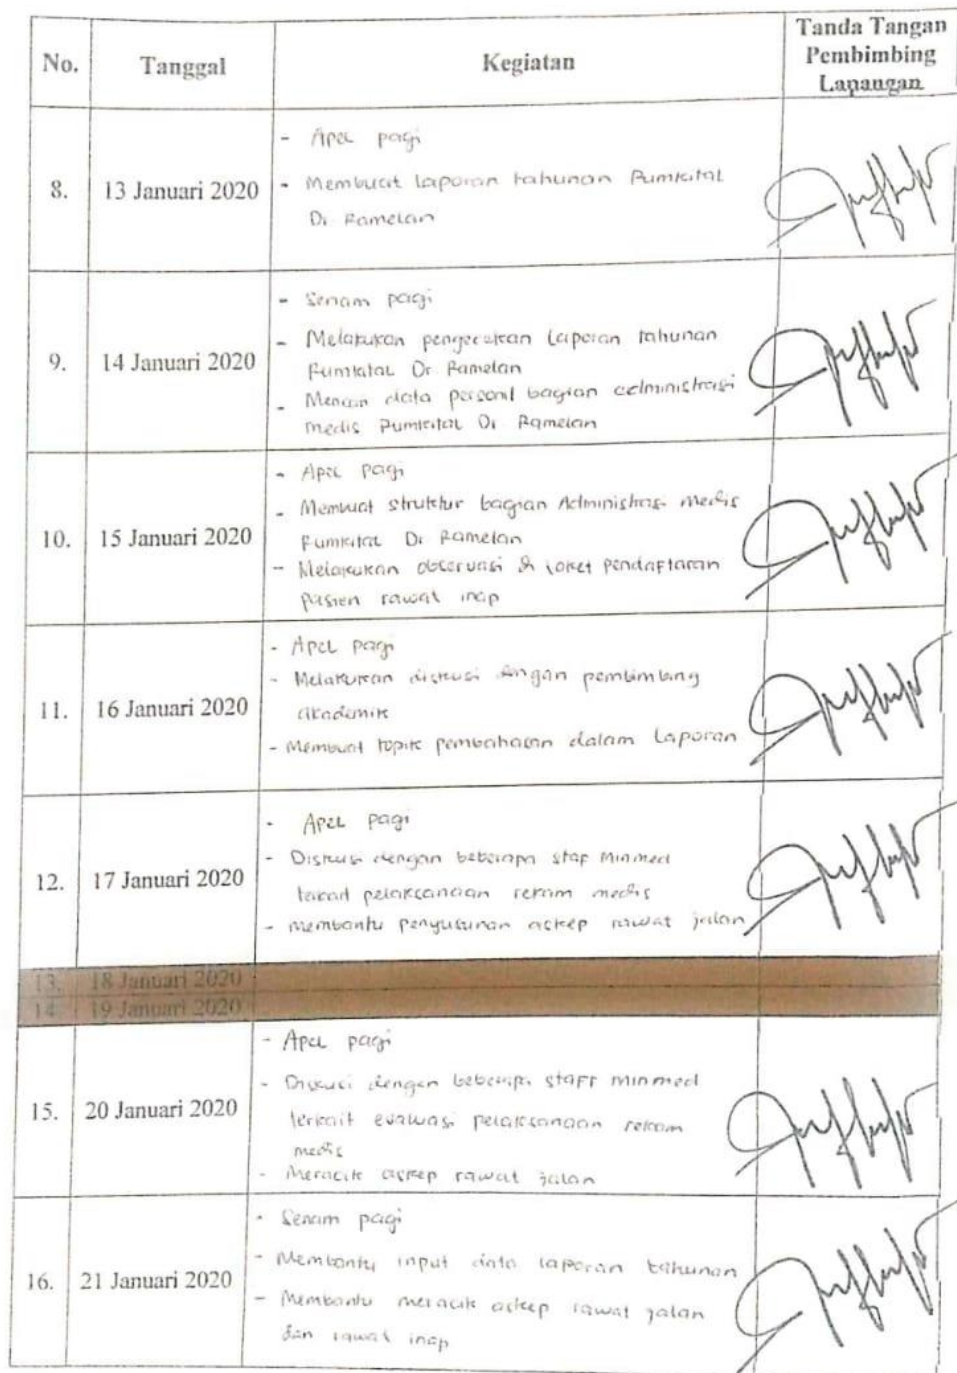 No. Tanggal Kegiatan Tanda Tangan
Pembimbing
Lapangan
8. 13 Januari 2020
- Apel pagi
- Membuat laporan tahunan Rumkital
Dr Ramelan
9. 14 Januari 2020
- Senam pagi
- Melakukan pengecekan laporan tahunan
Rumkital Dr Ramelan
- Mencari data personil bagian administrasi
medis Rumkital Dr Ramelan
10. 15 Januari 2020
- Apel pagi
- Membuat struktur bagian Administrasi medis
Rumkital Dr Ramelan
- Melakukan observasi di loket pendaftaran
pasien rawat inap
11. 16 Januari 2020
- Apel pagi
- Melakukan diskusi dengan pembimbing
akademik
- Membuat topik pembahasan dalam Laporan
12. 17 Januari 2020
- Apel pagi
- Diskusi dengan beberapa staf minmed
terkait pelaksanaan rekam medis
- membantu penyusunan askep rawat jalan
13. 18 Januari 2020
14. 19 Januari 2020
15. 20 Januari 2020
- Apel pagi
- Diskusi dengan beberapa staff minmed
terkait evaluasi pelaksanaan rekam
medis
- Meracik askep rawat jalan
16. 21 Januari 2020
- Senam pagi
- Membantu input data laporan tahunan
- Membantu meracik askep rawat jalan
dan rawat inap